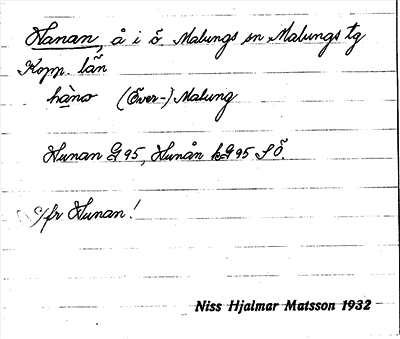 Hanan, å i ö. Malungs sn Malungs tg
Kopp. län
håna (Över-) Malung
Hunan G 95, Hunån kG 95 SÖ.
jfr Hunan!
Niss Hjalmar Matsson 1932